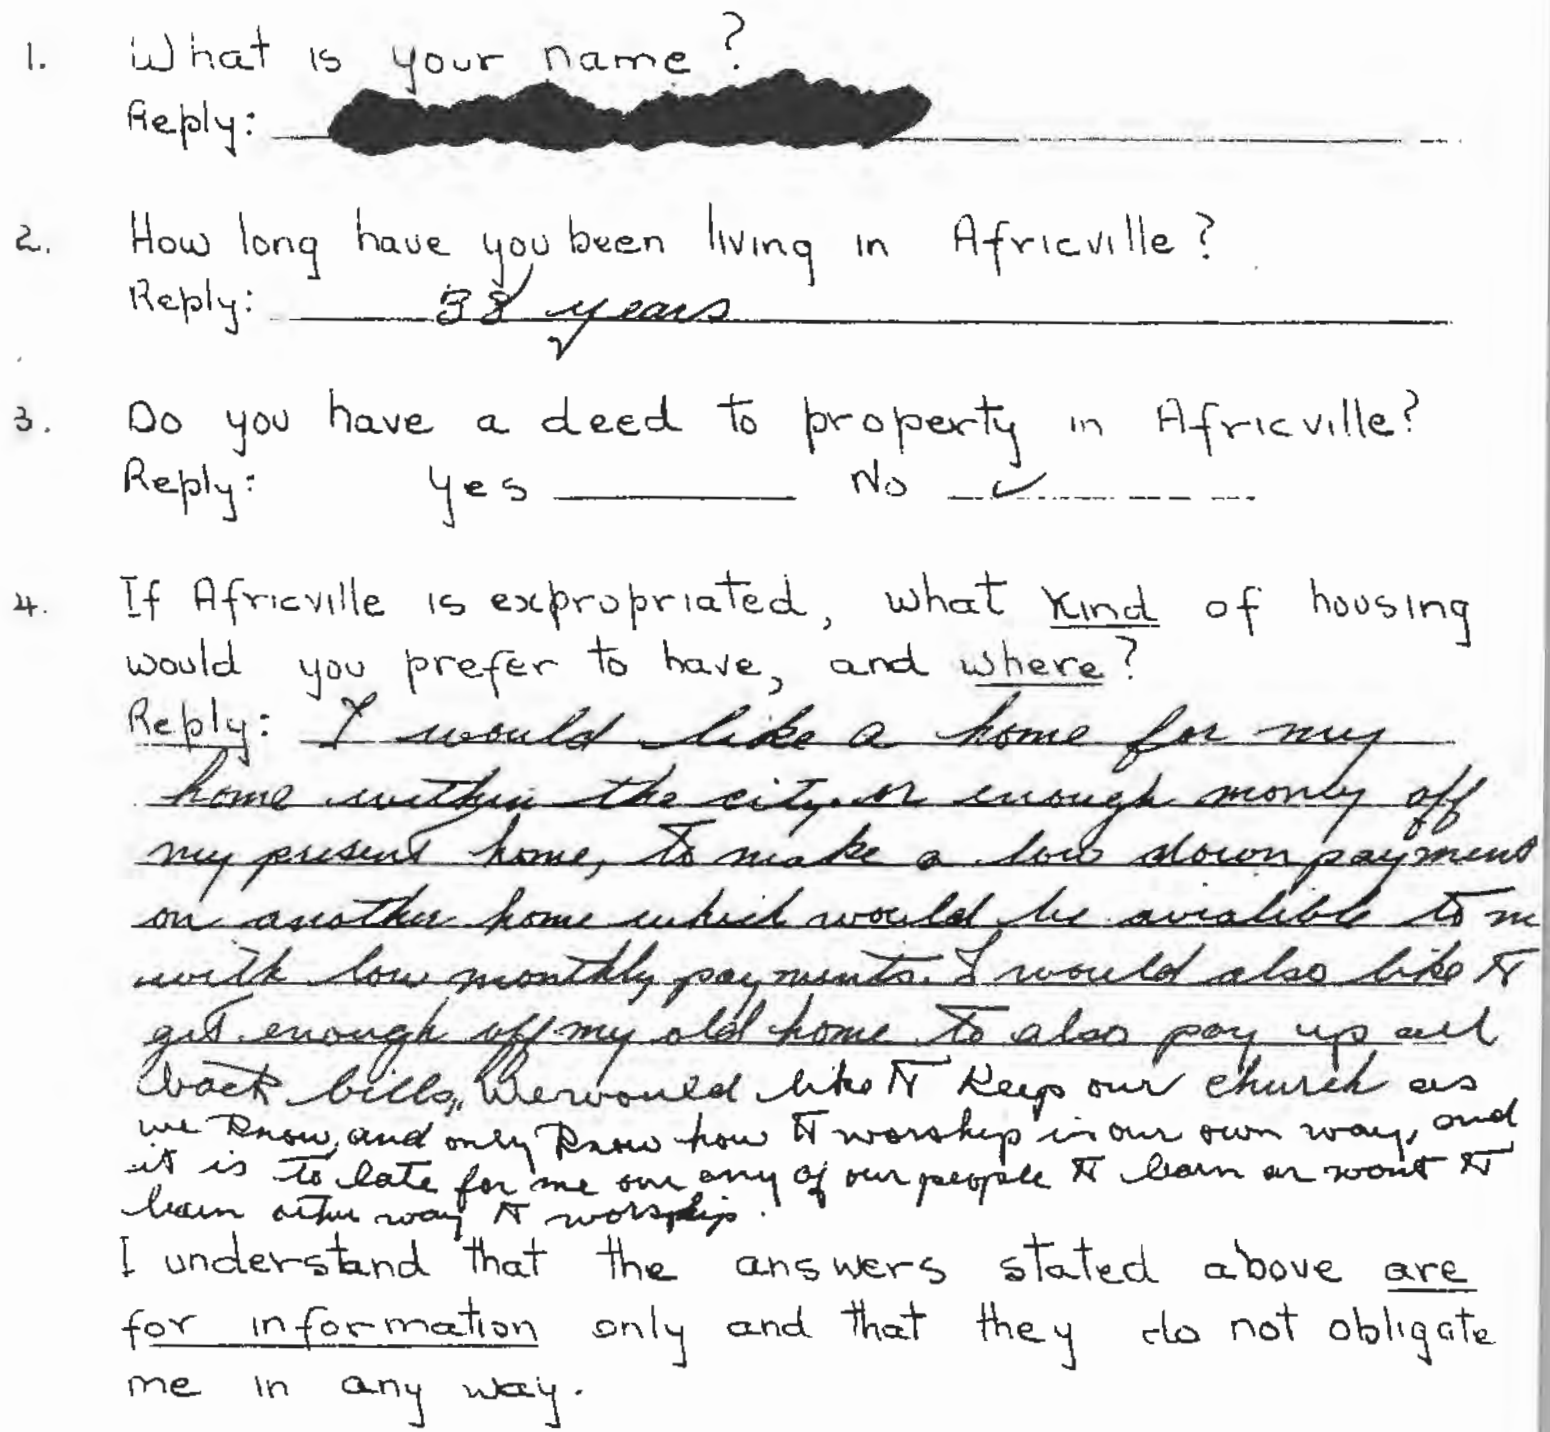 1. What is your name?
Reply:
2. How long have you been living in Africville?
Reply: 38 years
3. Do you have a deed to property in Africville?
Reply: Yes No ✓
4. If Africville is expropriated, what kind of housing
would you prefer to have, and where?
Reply: I would like a home for my
home within the city. or enough money off
my present home, to make a low down payment
on another home which would be avialible to m
with low monthly payments. I would also like to
get enough off my old home to also pay up all
back bills,, We would like to Keep our church as
we Know, and only Know how to worship in our own way, and
it is to late for me our any of our people to learn or want to
learn other way to worship.
I understand that the answers stated above are
for information only and that they do not obligate
me in any way.